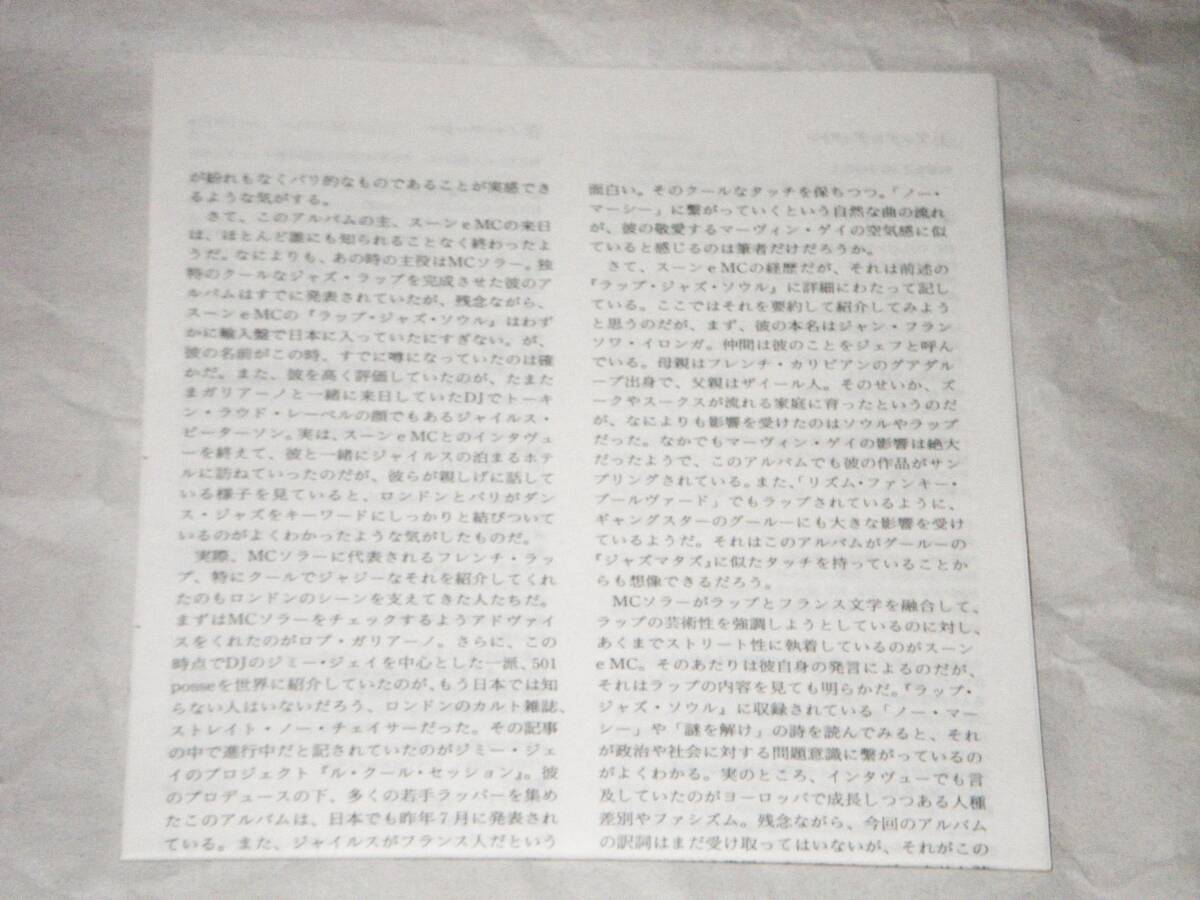 が紛れもなくパリ的なものであることが実感でき
るような気がする。
さて、このアルバムの主、スーンe MCの来日
は、ほとんど誰にも知られることなく終わったよ
うだ。なによりも、あの時の主役はMCソラー。独
特のクールなジャズ・ラップを完成させた彼のア
ルバムはすでに発表されていたが、残念ながら、
スーンe MCの『ラップ・ジャズ・ソウル』はわず
かに輸入盤で日本に入っていたにすぎない。が、
彼の名前がこの時、すでに噂になっていたのは確
かだ。また、彼を高く評価していたのが、たまた
まガリアーノと一緒に来日していたDJでトーキ
ン・ラウド・レーベルの顔でもあるジャイルス・
ピーターソン。実は、スーンe MCとのインタヴュ
ーを終えて、彼と一緒にジャイルスの泊まるホテ
ルに訪ねていったのだが、彼らが親しげに話して
いる様子を見ていると、ロンドンとパリがダン
ス・ジャズをキーワードにしっかりと結びついて
いるのがよくわかったような気がしたものだ。
実際、MCソラーに代表されるフレンチ・ラッ
プ、特にクールでジャジーなそれを紹介してくれ
たのもロンドンのシーンを支えてきた人たちだ。
まずはMCソラーをチェックするようアドヴァイ
スをくれたのがロブ・ガリアーノ。さらに、この
時点でDJのジミー・ジェイを中心とした一派、501
posseを世界に紹介していたのが、もう日本では知
らない人はいないだろう、ロンドンのカルト雑誌、
ストレイト・ノー・チェイサーだった。その記事
の中で進行中だと記されていたのがジミー・ジェ
イのプロジェクト『ル・クール・セッション』。彼
のプロデュースの下、多くの若手ラッパーを集め
たこのアルバムは、日本でも昨年7月に発表され
ている。また、ジャイルスがフランス人だという
面白い。そのクールなタッチを保ちつつ。「ノー・
マーシー」に繋がっていくという自然な曲の流れ
が、彼の敬愛するマーヴィン・ゲイの空気感に似
ていると感じるのは筆者だけだろうか。
さて、スーンe MCの経歴だが、それは前述の
『ラップ・ジャズ・ソウル』に詳細にわたって記し
ている。ここではそれを要約して紹介してみよう
と思うのだが、まず、彼の本名はジャン・フラン
ソワ・イロンガ。仲間は彼のことをジェフと呼ん
でいる。母親はフレンチ・カリビアンのグアダル
ープ出身で、父親はザイール人。そのせいか、ズ
ークやスークスが流れる家庭に育ったというのだ
が、なによりも影響を受けたのはソウルやラップ
だった。なかでもマーヴィン・ゲイの影響は絶大
だったようで、このアルバムでも彼の作品がサン
プリングされている。また、「リズム・ファンキー・
ブールヴァード」でもラップされているように、
ギャングスターのグールーにも大きな影響を受け
ているようだ。それはこのアルバムがグールーの
『ジャズマタズ』に似たタッチを持っていることか
らも想像できるだろう。
MCソラーがラップとフランス文学を融合して、
ラップの芸術性を強調しようとしているのに対し、
あくまでストリート性に執着しているのがスーン
e MC。そのあたりは彼自身の発言によるのだが、
それはラップの内容を見ても明らかだ。『ラップ・
ジャズ・ソウル』に収録されている「ノー・マー
シー」や「謎を解け」の詩を読んでみると、それ
が政治や社会に対する問題意識に繋がっているの
がよくわかる。実のところ、インタヴューでも言
及していたのがヨーロッパで成長しつつある人種
差別やファシズム。残念ながら、今回のアルバム
の訳詞はまだ受け取ってはいないが、それがこの